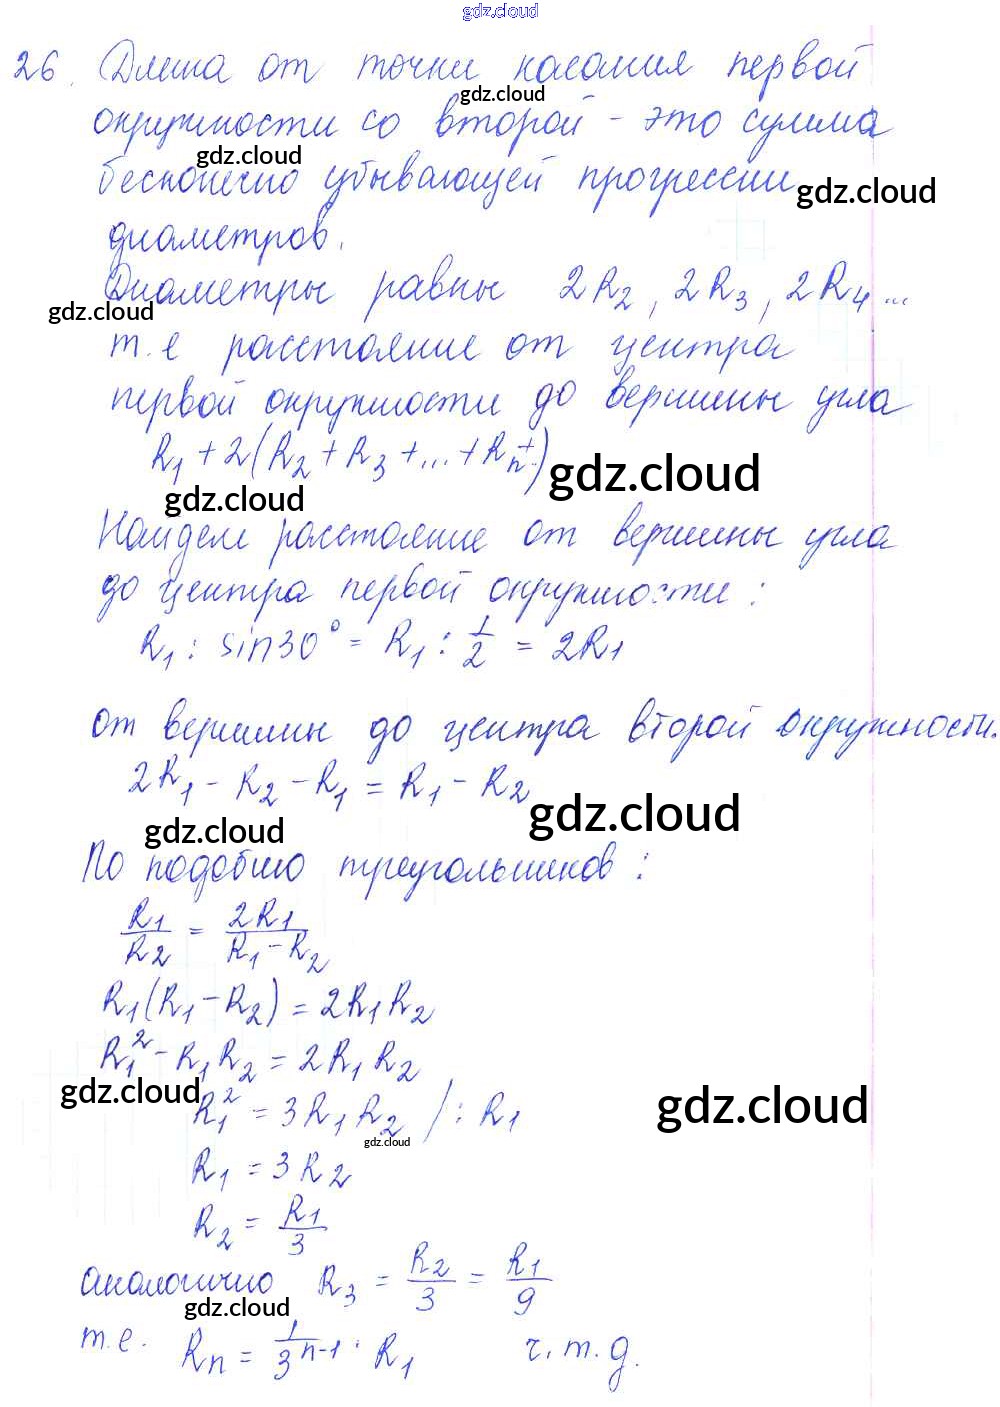 gdz.cloud
26. Длина от точки касания первой
gdz.cloud
окружности со второй - это сумма
gdz.cloud
бесконечно убывающей прогрессии
gdz.cloud
диаметров.
Диаметры равны 2R₂, 2R₃, 2R₄...
gdz.cloud
т.е расстояние от центра
первой окружности до вершины угла
R₁ + 2(R₂ + R₃ + ... + Rₙ + )
gdz.cloud
gdz.cloud
Найдем расстояние от вершины угла
до центра первой окружности:
R₁ : sin30° = R₁ : 1/2 = 2R₁
от вершины до центра второй окружности.
2R₁ - R₂ - R₁ = R₁ - R₂
gdz.cloud
gdz.cloud
По подобию треугольников:
R₁/R₂ = 2R₁/(R₁ - R₂)
R₁(R₁ - R₂) = 2R₁R₂
R₁² - R₁R₂ = 2R₁R₂
gdz.cloud
gdz.cloud
R₁² = 3R₁R₂ / : R₁
gdz.cloud
R₁ = 3R₂
R₂ = R₁/3
аналогично R₃ = R₂/3 = R₁/9
gdz.cloud
т.е. Rₙ = 1/3ⁿ⁻¹ · R₁ ч.т.д.